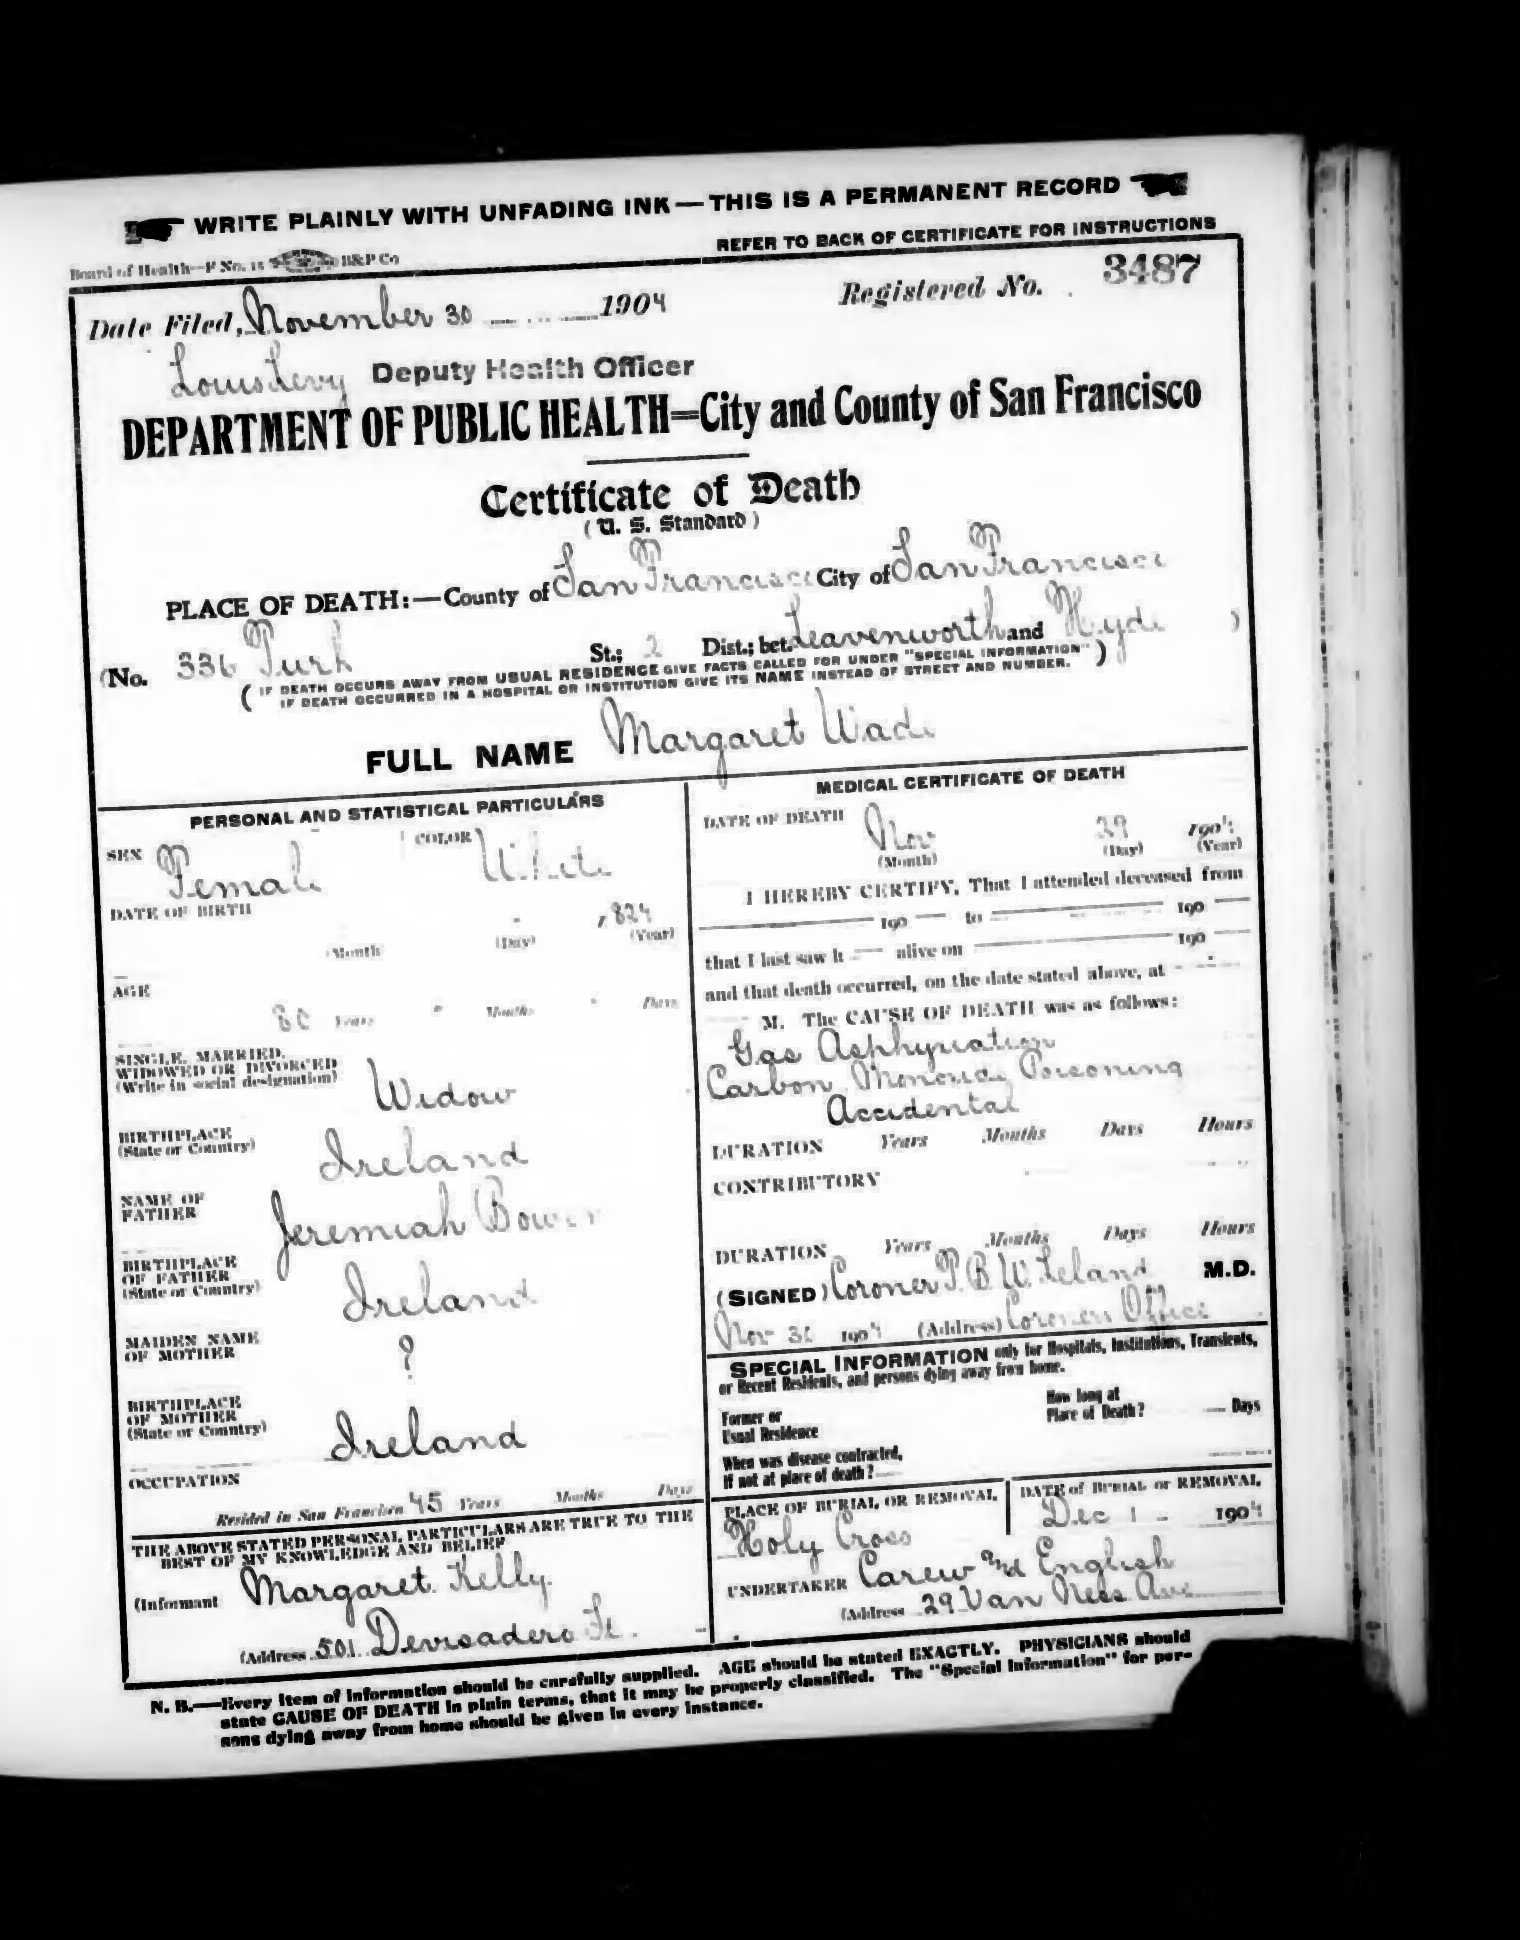 WRITE PLAINLY WITH UNFADING INK—THIS IS A PERMANENT RECORD
REFER TO BACK OF CERTIFICATE FOR INSTRUCTIONS
Board of Health—F No. 15 B&P Co
Date Filed, November 30 1904 Registered No. 3487
Louis Levy Deputy Health Officer
DEPARTMENT OF PUBLIC HEALTH=City and County of San Francisco
Certificate of Death
(U. S. Standard)
PLACE OF DEATH:—County of San Francisco City of San Francisco
(No. 336 Turk St.; 2 Dist.; bet. Leavenworth and Hyde )
(IF DEATH OCCURS AWAY FROM USUAL RESIDENCE GIVE FACTS CALLED FOR UNDER "SPECIAL INFORMATION"
IF DEATH OCCURRED IN A HOSPITAL OR INSTITUTION GIVE ITS NAME INSTEAD OF STREET AND NUMBER.)
FULL NAME Margaret Wade
PERSONAL AND STATISTICAL PARTICULARS
SEX Female COLOR White
DATE OF BIRTH 1824
(Month) (Day) (Year)
AGE 80 Years " Months " Days
SINGLE, MARRIED,
WIDOWED OR DIVORCED
(Write in social designation) Widow
BIRTHPLACE
(State or Country) Ireland
NAME OF
FATHER Jeremiah Bower
BIRTHPLACE
OF FATHER
(State or Country) Ireland
MAIDEN NAME
OF MOTHER ?
BIRTHPLACE
OF MOTHER
(State or Country) Ireland
OCCUPATION
Resided in San Francisco 45 Years Months Days
THE ABOVE STATED PERSONAL PARTICULARS ARE TRUE TO THE
BEST OF MY KNOWLEDGE AND BELIEF
(Informant Margaret Kelly
(Address 501 Devisadero St.
MEDICAL CERTIFICATE OF DEATH
DATE OF DEATH Nov 29 1904
(Month) (Day) (Year)
I HEREBY CERTIFY, That I attended deceased from
190 to 190
that I last saw h alive on 190
and that death occurred, on the date stated above, at
M. The CAUSE OF DEATH was as follows:
Gas Asphyxiation
Carbon Monoxide Poisoning
Accidental
DURATION Years Months Days Hours
CONTRIBUTORY
DURATION Years Months Days Hours
(SIGNED) Coroner T. B. W. Leland M.D.
Nov 30 1904 (Address) Coroners Office
SPECIAL INFORMATION only for Hospitals, Institutions, Transients,
or Recent Residents, and persons dying away from home.
Former or
Usual Residence
How long at
Place of Death? Days
When was disease contracted,
If not at place of death?
PLACE OF BURIAL OR REMOVAL
Holy Cross
DATE of BURIAL or REMOVAL
Dec 1 - 1904
UNDERTAKER Carew and English
(Address 29 Van Ness Ave
N. B.—Every item of information should be carefully supplied. AGE should be stated EXACTLY. PHYSICIANS should
state CAUSE OF DEATH in plain terms, that it may be properly classified. The "Special Information" for per-
sons dying away from home should be given in every instance.